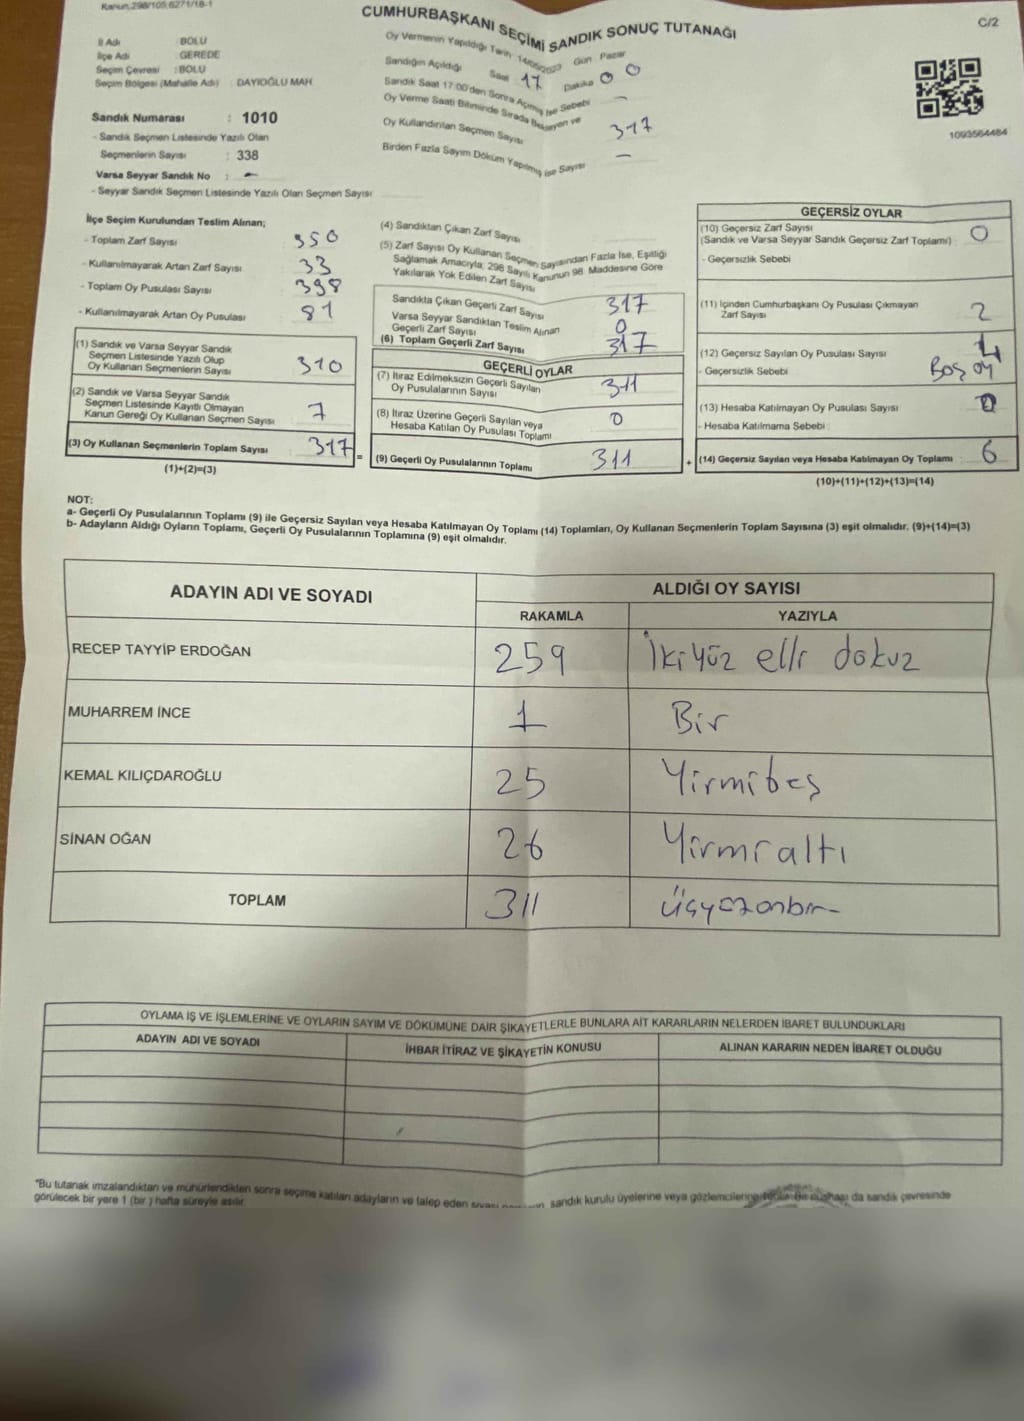 Kanun:298/105;6271/18-1
CUMHURBAŞKANI SEÇİMİ SANDIK SONUÇ TUTANAĞI
C/2
İl Adı : BOLU
İlçe Adı : GEREDE
Seçim Çevresi : BOLU
Seçim Bölgesi (Mahalle Adı) : DAYIOĞLU MAH
Sandık Numarası : 1010
- Sandık Seçmen Listesinde Yazılı Olan
Seçmenlerin Sayısı : 338
Varsa Seyyar Sandık No : -
- Seyyar Sandık Seçmen Listesinde Yazılı Olan Seçmen Sayısı
Oy Vermenin Yapıldığı Tarih : 14/05/2023 Gün : Pazar
Sandığın Açıldığı Saat 17 Dakika 00
Sandık Saat 17:00'den Sonra Açılmış İse Sebebi -
Oy Verme Saati Bitiminde Sırada Bekleyen ve
Oy Kullandırılan Seçmen Sayısı 317
Birden Fazla Sayım Döküm Yapılmış ise Sayısı -
1093564484
İlçe Seçim Kurulundan Teslim Alınan;
- Toplam Zarf Sayısı : 350
- Kullanılmayarak Artan Zarf Sayısı : 33
- Toplam Oy Pusulası Sayısı : 398
- Kullanılmayarak Artan Oy Pusulası : 81
(1) Sandık ve Varsa Seyyar Sandık
Seçmen Listesinde Yazılı Olup
Oy Kullanan Seçmenlerin Sayısı : 310
(2) Sandık ve Varsa Seyyar Sandık
Seçmen Listesinde Kayıtlı Olmayan
Kanun Gereği Oy Kullanan Seçmen Sayısı : 7
(3) Oy Kullanan Seçmenlerin Toplam Sayısı : 317
(1)+(2)=(3)
=
(4) Sandıktan Çıkan Zarf Sayısı
(5) Zarf Sayısı Oy Kullanan Seçmen Sayısından Fazla İse, Eşitliği
Sağlamak Amacıyla; 298 Sayılı Kanunun 98. Maddesine Göre
Yakılarak Yok Edilen Zarf Sayısı
Sandıkta Çıkan Geçerli Zarf Sayısı 317
Varsa Seyyar Sandıktan Teslim Alınan
Geçerli Zarf Sayısı 0
(6) Toplam Geçerli Zarf Sayısı 317
GEÇERLİ OYLAR
(7) İtiraz Edilmeksizin Geçerli Sayılan
Oy Pusulalarının Sayısı 311
(8) İtiraz Üzerine Geçerli Sayılan veya
Hesaba Katılan Oy Pusulası Toplamı 0
(9) Geçerli Oy Pusulalarının Toplamı 311
+
GEÇERSİZ OYLAR
(10) Geçersiz Zarf Sayısı
(Sandık ve Varsa Seyyar Sandık Geçersiz Zarf Toplamı) : 0
- Geçersizlik Sebebi
(11) İçinden Cumhurbaşkanı Oy Pusulası Çıkmayan
Zarf Sayısı 2
(12) Geçersiz Sayılan Oy Pusulası Sayısı 4
- Geçersizlik Sebebi Boş oy
(13) Hesaba Katılmayan Oy Pusulası Sayısı 0
- Hesaba Katılmama Sebebi :
(14) Geçersiz Sayılan veya Hesaba Katılmayan Oy Toplamı : 6
(10)+(11)+(12)+(13)=(14)
NOT:
a- Geçerli Oy Pusulalarının Toplamı (9) ile Geçersiz Sayılan veya Hesaba Katılmayan Oy Toplamı (14) Toplamları, Oy Kullanan Seçmenlerin Toplam Sayısına (3) eşit olmalıdır. (9)+(14)=(3)
b- Adayların Aldığı Oyların Toplamı, Geçerli Oy Pusulalarının Toplamına (9) eşit olmalıdır.
ADAYIN ADI VE SOYADI ALDIĞI OY SAYISI
RAKAMLA YAZIYLA
RECEP TAYYİP ERDOĞAN 259 İkiyüz elli dokuz
MUHARREM İNCE 1 Bir
KEMAL KILIÇDAROĞLU 25 Yirmibeş
SİNAN OĞAN 26 Yirmialtı
TOPLAM 311 üçyüzonbir
OYLAMA İŞ VE İŞLEMLERİNE VE OYLARIN SAYIM VE DÖKÜMÜNE DAİR ŞİKAYETLERLE BUNLARA AİT KARARLARIN NELERDEN İBARET BULUNDUKLARI
ADAYIN ADI VE SOYADI İHBAR İTİRAZ VE ŞİKAYETİN KONUSU ALINAN KARARIN NEDEN İBARET OLDUĞU
"Bu tutanak imzalandıktan ve mühürlendikten sonra seçime katılan adayların ve talep eden siyasi sandık kurulu üyelerine veya gözlemcilerine da sandık çevresinde
görülecek bir yere 1 (bir ) hafta süreyle asılır.